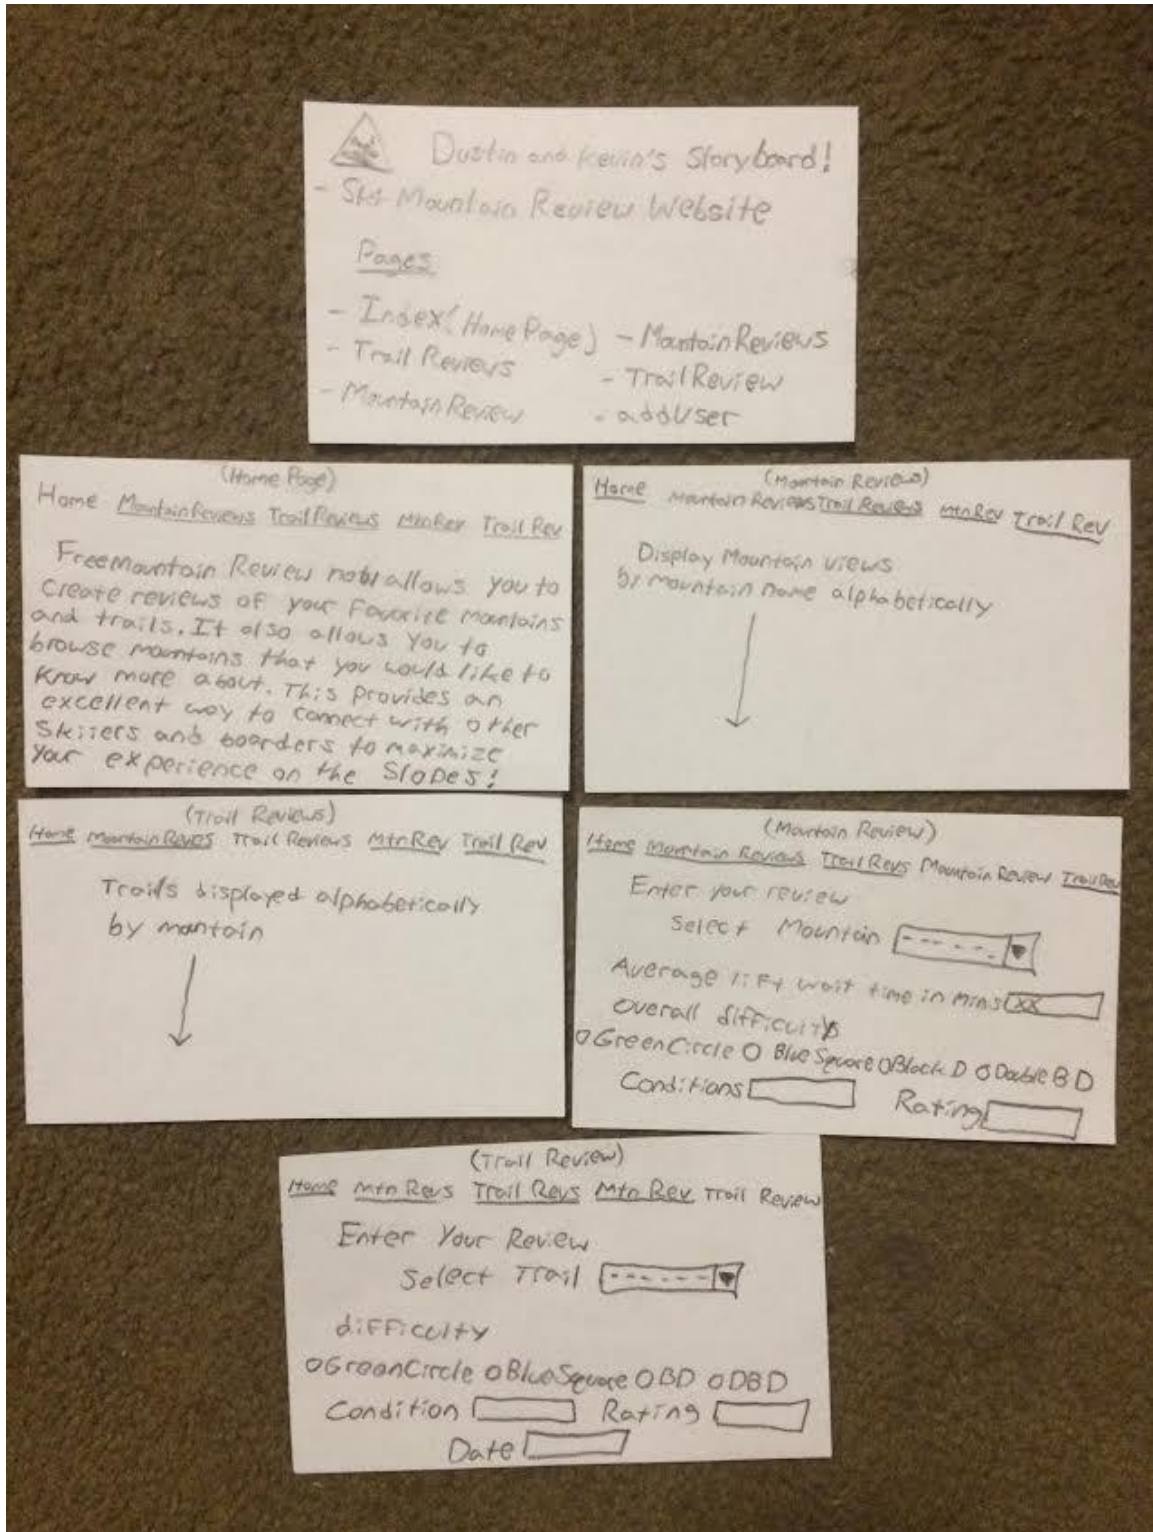 Dustin and Kevin's Storyboard!
- Ski Mountain Review Website
Pages
- Index (Home Page)
- Trail Reviews
- Mountain Review
- Mantain Reviews
- Trail Review
- addUser
(Home Page)
Home Mountain Reviews Trail Reviews MtnRev Trail Rev
FreeMountain Review allows you to
create reviews of your favorite mantains
and trails. It also allows you to
browse mantains that you would like to
know more about. This provides an
excellent way to connect with other
Skiiers and boarders to maximize
your experience on the Slopes!
(Mantain Reviews)
Home Mountain Reviews Trail Reviews mtnRev Trail Rev
Display Mountain views
by mountain name alphabetically
(Trail Reviews)
Home Trail Reviews MtnRev Trail Rev
Trails displayed alphabetically
by mantain
(Mantain Review)
Home Mountain Reviews Trail Revs Mountain Review Trail Rev
Enter your review
Select Mountain
Average lift wait time in mins XX
Overall difficulty
GreenCircle Blue Square Black D Double B D
Conditions Rating
(Trail Review)
Home Mtn Revs Trail Revs Mtn Rev Trail Review
Enter Your Review
Select Trail
difficulty
GreenCircle BlueSquare BD DBD
Condition Rating
Date